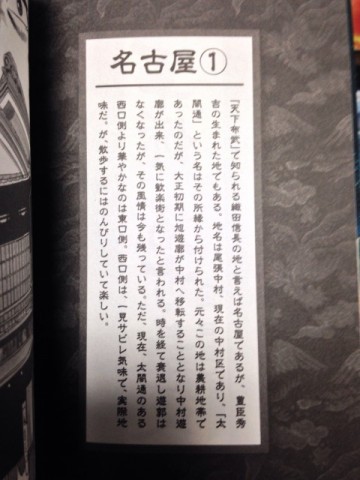 名古屋①
『天下布武』で知られる織田信長の地と言えば名古屋であるが、豊臣秀
吉の生まれた地でもある。地名は尾張中村、現在の中村区であり、「太
閤通」という名はその所縁から付けられた。元々この地は農耕地帯で
あったのだが、大正初期に旭遊廓が中村へ移転することとなり中村遊
廓が出来、一気に歓楽街となったと言われる。時を経て衰退し遊郭は
なくなったが、その風情は今も残っている。ただ、現在、太閤通のある
西口側より華やかなのは東口側。西口側は、一見サビレ気味で、実際地
味だ。が、散歩するにはのんびりしていて楽しい。